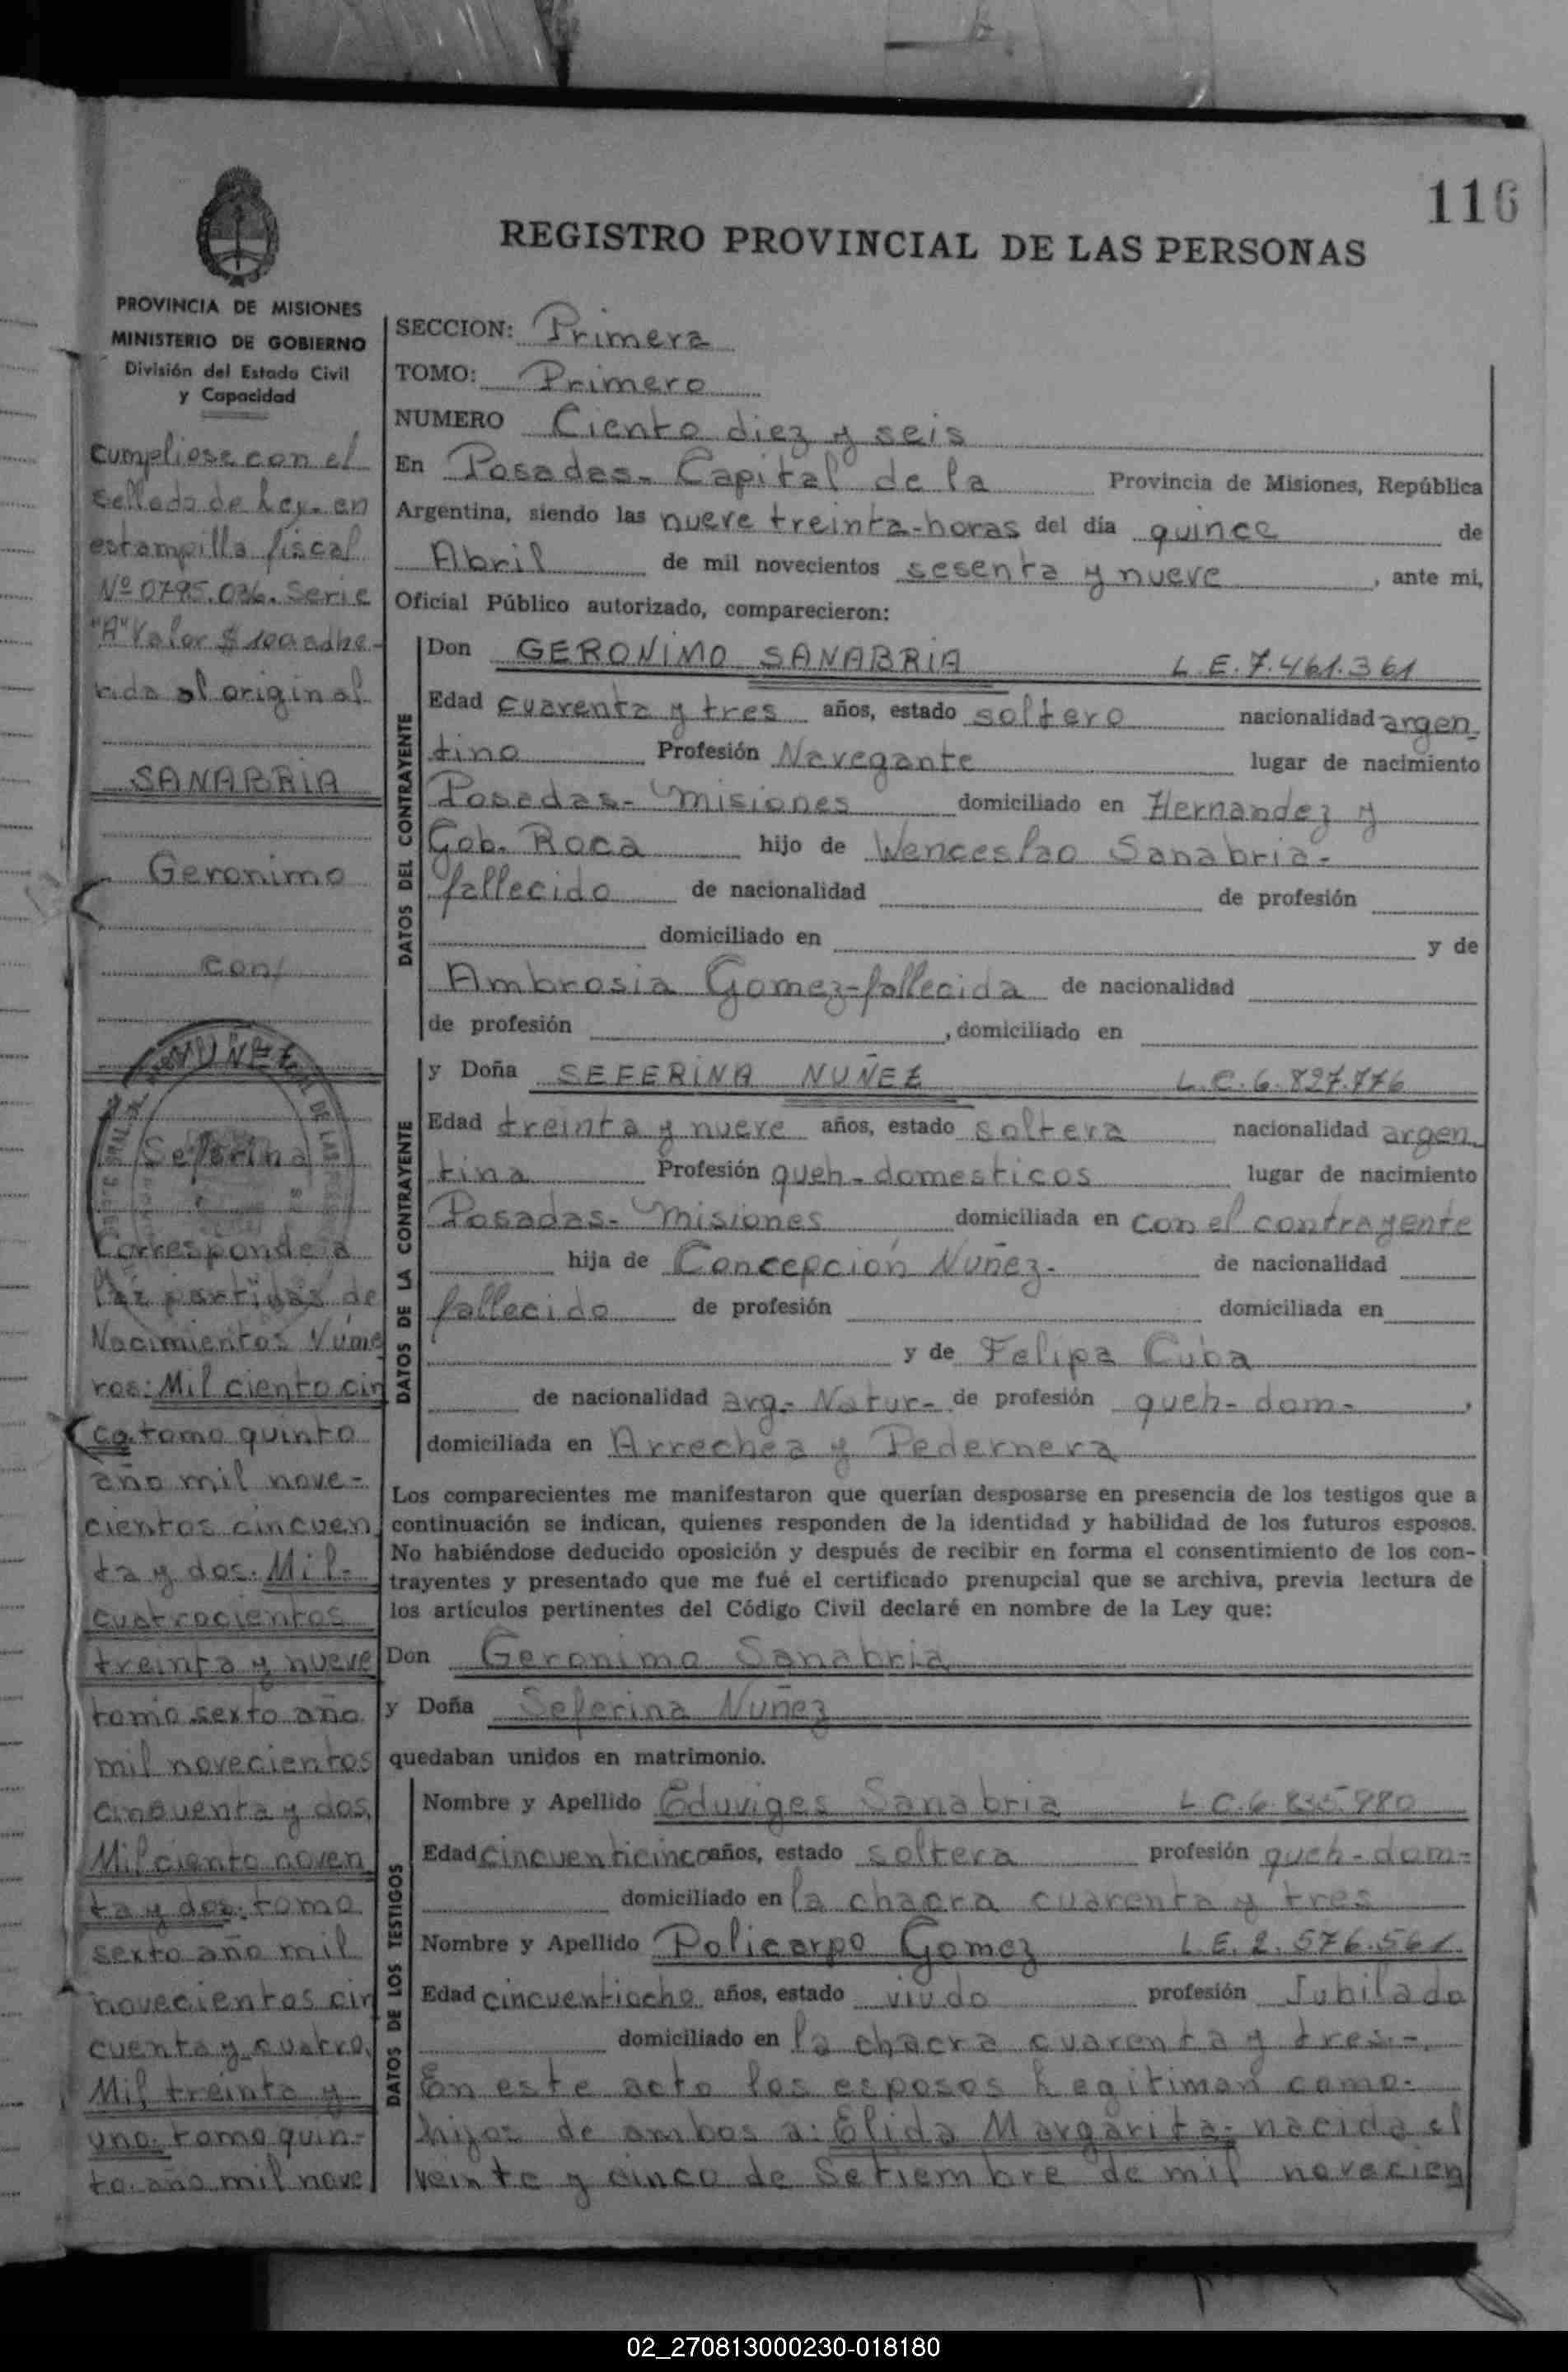 116
REGISTRO PROVINCIAL DE LAS PERSONAS
PROVINCIA DE MISIONES
MINISTERIO DE GOBIERNO
División del Estado Civil
y Capacidad
Cumpliose con el
sellado de Ley. en
estampilla fiscal
Nº 0795.036. Serie
"A" Valor $ 100 adhe-
rida al original
SANABRIA
Geronimo
con/
NUÑEZ
Seferina
Corresponde a
las partidas de
Nacimientos Núme
ros: Mil ciento cin
co tomo quinto
año mil nove-
cientos cincuen
ta y dos. Mil-
cuatrocientos
treinta y nueve
tomo sexto año
mil novecientos
cincuenta y dos,
Mil ciento noven
ta y dos. tomo
sexto año mil
novecientos cin
cuenta y cuatro.
Mil treinta y
uno. tomo quin-
to. año mil nove
SECCION: Primera
TOMO: Primero
NUMERO Ciento diez y seis
En Posadas- Capital de la Provincia de Misiones, República
Argentina, siendo las nueve treinta-horas del día quince de
Abril de mil novecientos sesenta y nueve, ante mi,
Oficial Público autorizado, comparecieron:
DATOS DEL CONTRAYENTE
Don GERONIMO SANABRIA L.E.7.461.361
Edad cuarenta y tres años, estado soltero nacionalidad argen-
tino Profesión Navegante lugar de nacimiento
Posadas- Misiones domiciliado en Hernandez y
Gob. Roca hijo de Wenceslao Sanabria-
fallecido de nacionalidad de profesión
domiciliado en y de
Ambrosia Gomez-fallecida de nacionalidad
de profesión , domiciliado en
DATOS DE LA CONTRAYENTE
y Doña SEFERINA NUÑEZ L.C.6.827.776
Edad treinta y nueve años, estado soltera nacionalidad argen-
tina Profesión queh-domesticos lugar de nacimiento
Posadas- Misiones domiciliada en con el contrayente
hija de Concepción Nuñez- de nacionalidad
fallecido de profesión domiciliada en
y de Felipa Cuba
de nacionalidad arg.- Natur- de profesión queh-dom-,
domiciliada en Arrechea y Pedernera
Los comparecientes me manifestaron que querían desposarse en presencia de los testigos que a
continuación se indican, quienes responden de la identidad y habilidad de los futuros esposos.
No habiéndose deducido oposición y después de recibir en forma el consentimiento de los con-
trayentes y presentado que me fué el certificado prenupcial que se archiva, previa lectura de
los artículos pertinentes del Código Civil declaré en nombre de la Ley que:
Don Geronimo Sanabria
y Doña Seferina Nuñez
quedaban unidos en matrimonio.
DATOS DE LOS TESTIGOS
Nombre y Apellido Eduviges Sanabria L.C.6.835.980
Edad cincuenticinco años, estado soltera profesión queh-dom-
domiciliado en la chacra cuarenta y tres
Nombre y Apellido Policarpo Gomez L.E. 2.576.561
Edad cincuentiocho años, estado viudo profesión Jubilado
domiciliado en la chacra cuarenta y tres-.
En este acto los esposos Legitiman como-
hijos de ambos a: Elida Margarita; nacida el
veinte y cinco de Setiembre de mil novecien
02_270813000230-018180